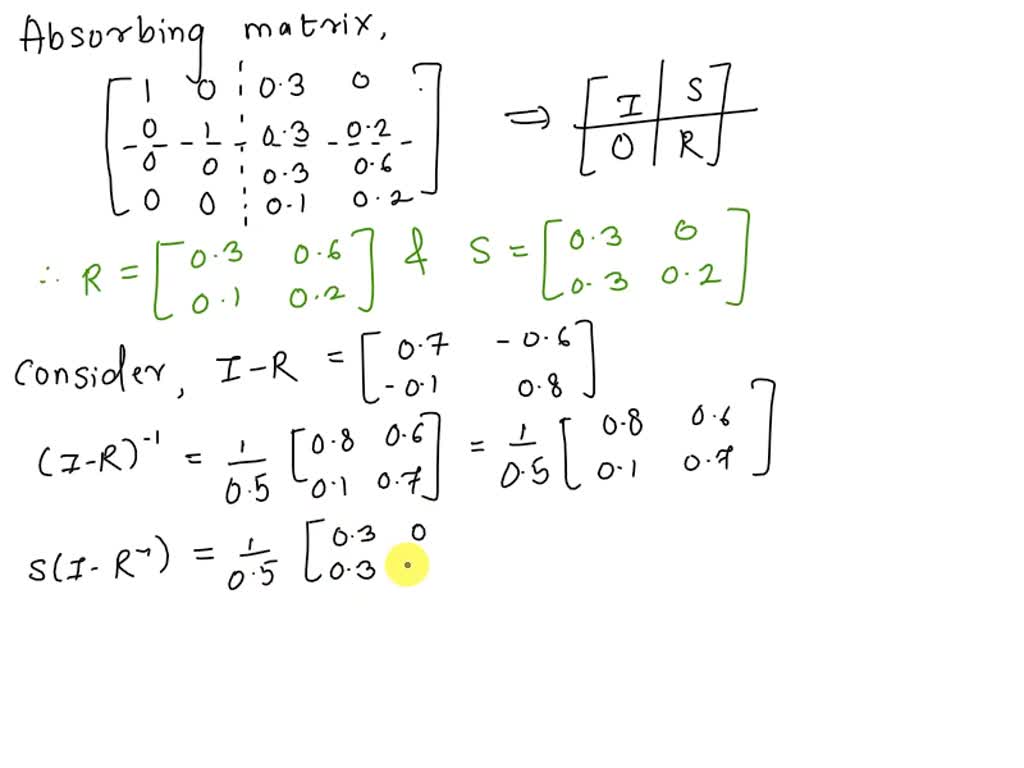 Absorbing matrix,
[1 0 ¦ 0.3 0
0 1 ¦ 0.3 0.2
0 0 ¦ 0.3 0.6
0 0 ¦ 0.1 0.2] ⇒ [I | S
0 | R]
∴ R = [0.3 0.6
0.1 0.2] & S = [0.3 0
0.3 0.2]
Consider, I-R = [0.7 -0.6
-0.1 0.8]
(I-R)⁻¹ = 1/0.5 [0.8 0.6
0.1 0.7] = 1/0.5 [0.8 0.6
0.1 0.7]
S(I-R⁻¹) = 1/0.5 [0.3 0
0.3